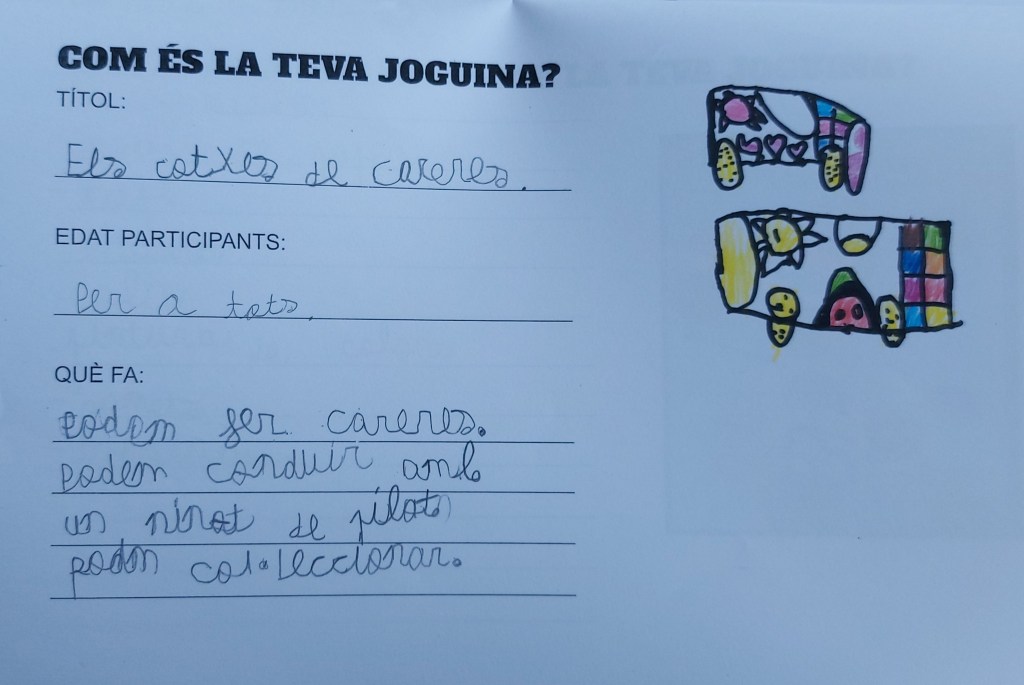 COM ÉS LA TEVA JOGUINA?
TÍTOL:
Els cotxes de careres.
EDAT PARTICIPANTS:
Per a tots.
QUÈ FA:
podem fer careres.
podem conduir amb
un ninot de pilot
podm col·leccionar.